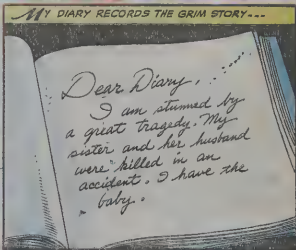 MY DIARY RECORDS THE GRIM STORY---
Dear Diary,
I am stunned by
a great tragedy. My
sister and her husband
were killed in an
accident. I have the
baby.